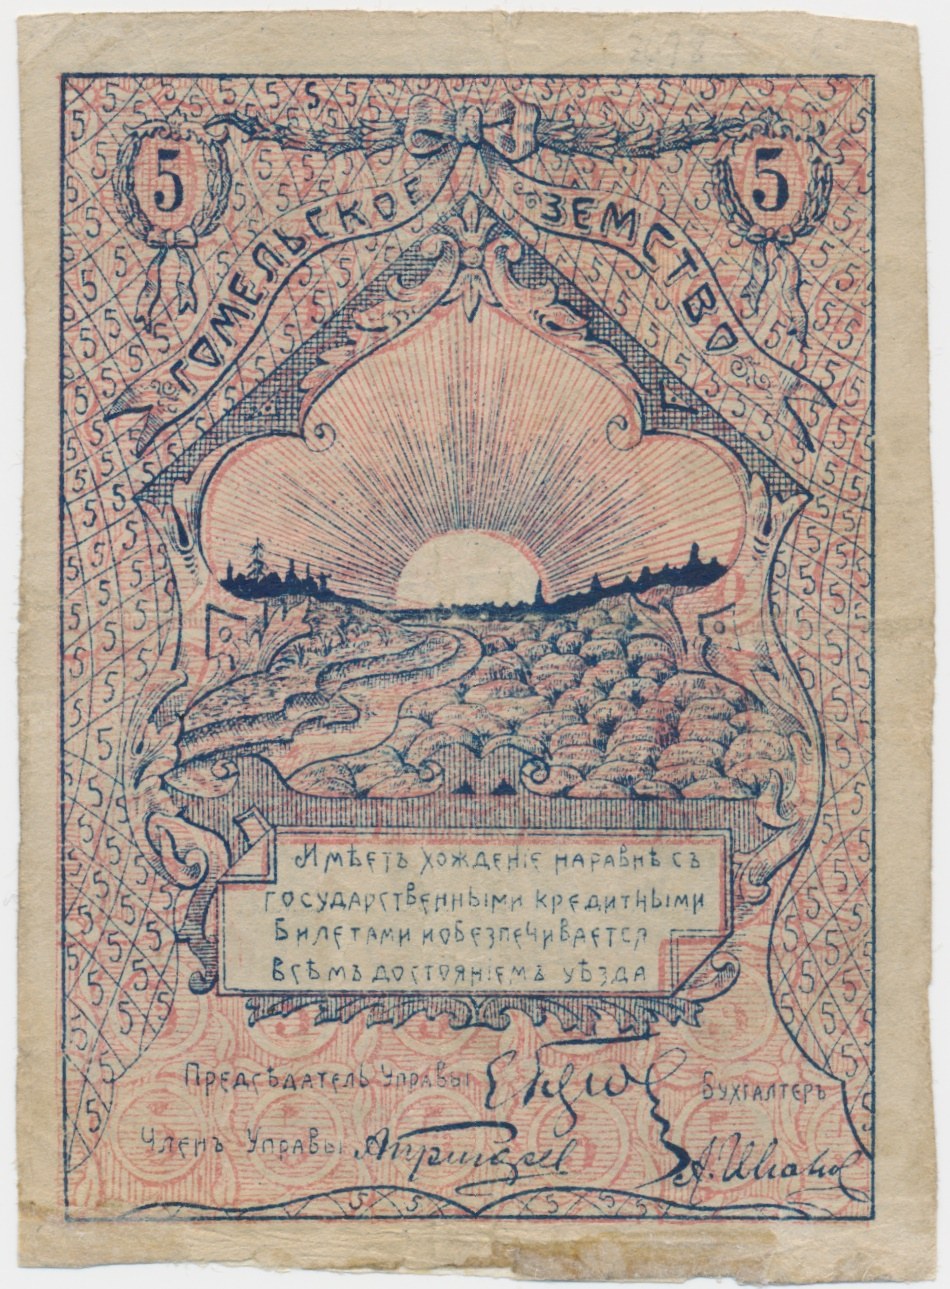 5 5
ГОМЕЛЬСКОЕ ЗЕМСТВО
Имѣетъ хожденіе наравнѣ съ
государственными кредитными
билетами и обезпечивается
всѣмъ достояніемъ уѣзда
Предсѣдатель Управы
Бухгалтеръ
Членъ Управы
А. Иванов